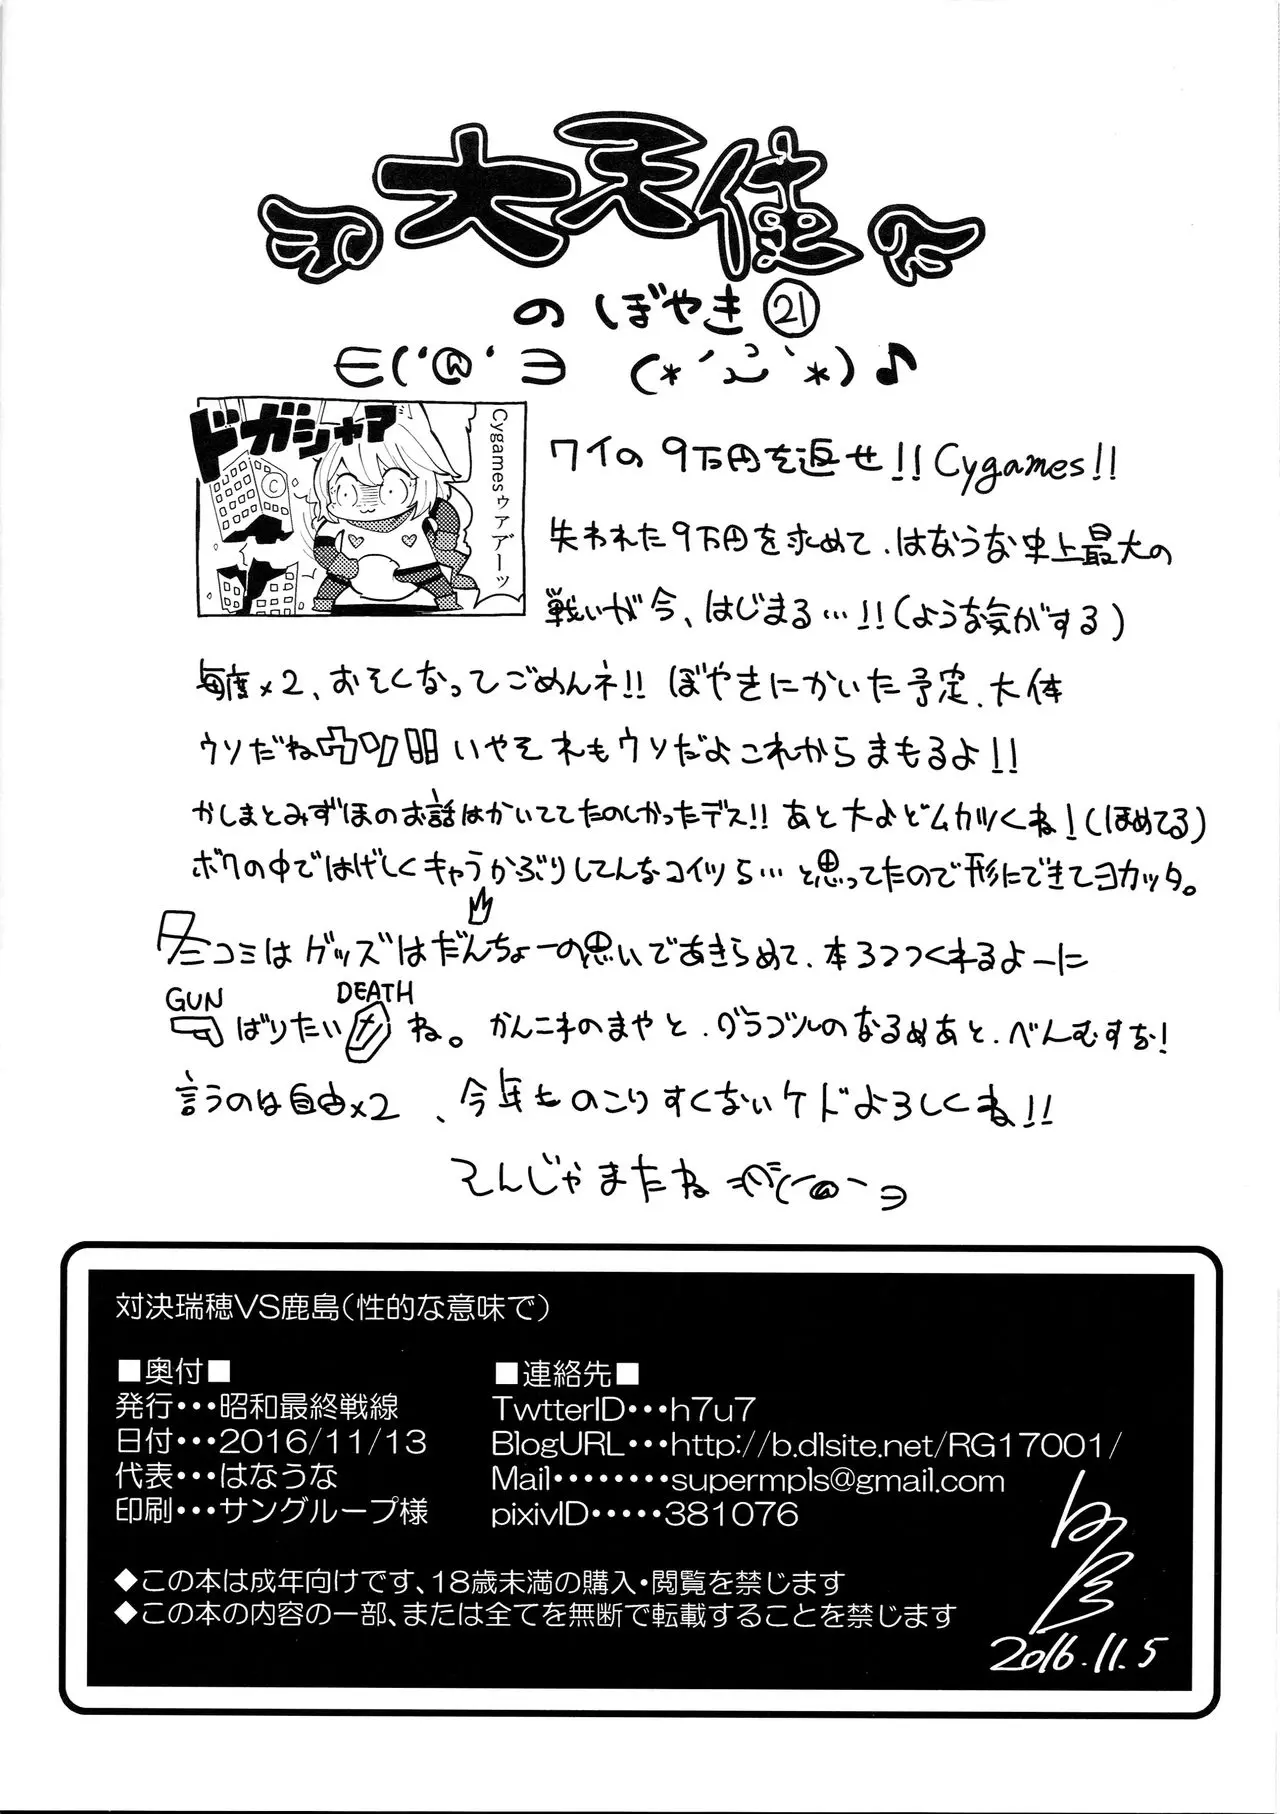 大天使
のぼやき㉑
∈(‘@‘∋ (*´ `*)♪
ドガシャァ
Cygamesゥアアーッ
ワイの9万円を返せ!!Cygames!!
失われた9万円を求めて、はなうな史上最大の
戦いが今、はじまる…!!(ような気がする)
毎度×2、おそくなってごめんネ!!ぼやきにかいた予定、大体
ウソだねウソ!!いやそれもウソだよこれからまもるよ!!
かしまとみずほのお話はかいててたのしかったデス!!あと大よどムカツくね!(ほめてる)
ボクの中ではげしくキャラかぶりしてんなコイツら…と思ってたので形にできてヨカッタ。
冬コミはグッズはだんちょーの思いであきらめて、本3つつくれるよーに
GUN ばりたい DEATH ね。かんこれのまやと、グラブルのなるめあと、べんむすな!
言うのは自由×2、今年ものこりすくないケドよろしくね!!
そんじゃまたね
対決瑞穂VS鹿島(性的な意味で)
■奥付■
発行・・・昭和最終戦線
日付・・・2016/11/13
代表・・・はなうな
印刷・・・サングループ様
■連絡先■
TwtterID・・・h7u7
BlogURL・・・http://b.dlsite.net/RG17001/
Mail・・・・・・・・supermpls@gmail.com
pixivID・・・・・381076
◆この本は成年向けです、18歳未満の購入・閲覧を禁じます
◆この本の内容の一部、または全てを無断で転載することを禁じます
2016.11.5